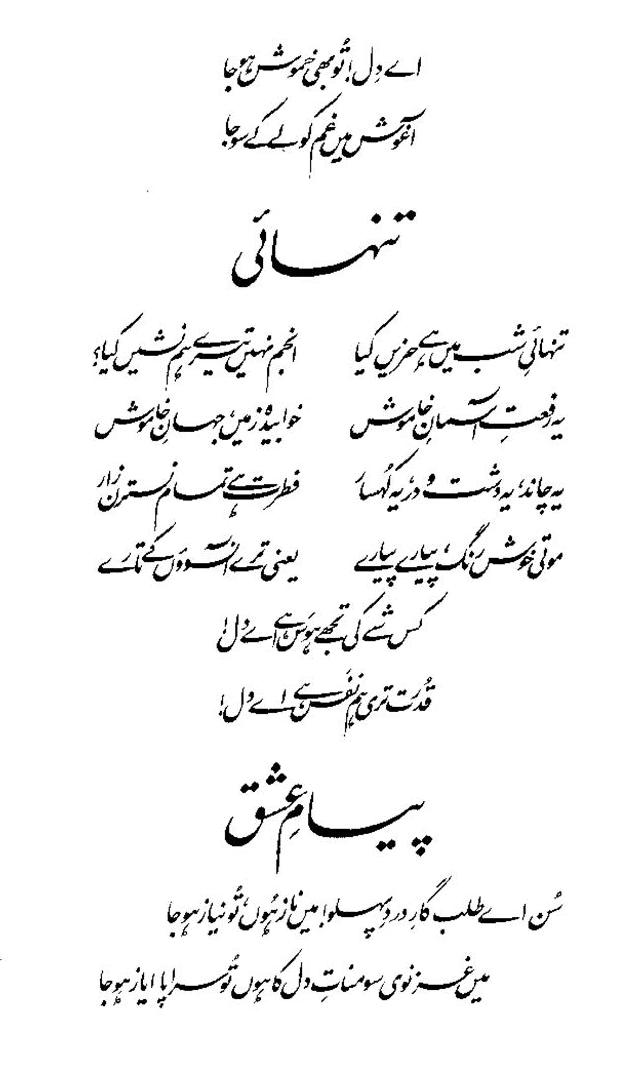 اے دِل! تُو بھی خموش ہو جا
آغوش میں غم کو لے کے سو جا
تنہائی
تنہائیِ شب میں ہے حزیں کیا انجم نہیں تیرے ہم نشیں کیا؟
یہ رفعتِ آسمانِ خاموش خوابیدہ زمیں، جہانِ خاموش
یہ چاند، یہ دشت و در، یہ کُہسار فطرت ہے تمام نسترن زار
موتی خوش رنگ، پیارے پیارے یعنی ترے آنسوؤں کے تارے
کس شے کی تجھے ہوَس ہے اے دل!
قُدرت تری ہم نفَس ہے اے دل!
پیامِ عشق
سُن اے طلب گارِ دردِ پہلو! میں ناز ہُوں، تُو نیاز ہو جا
میں غزنوی سومناتِ دل کا ہُوں تُو سراپا ایاز ہو جا